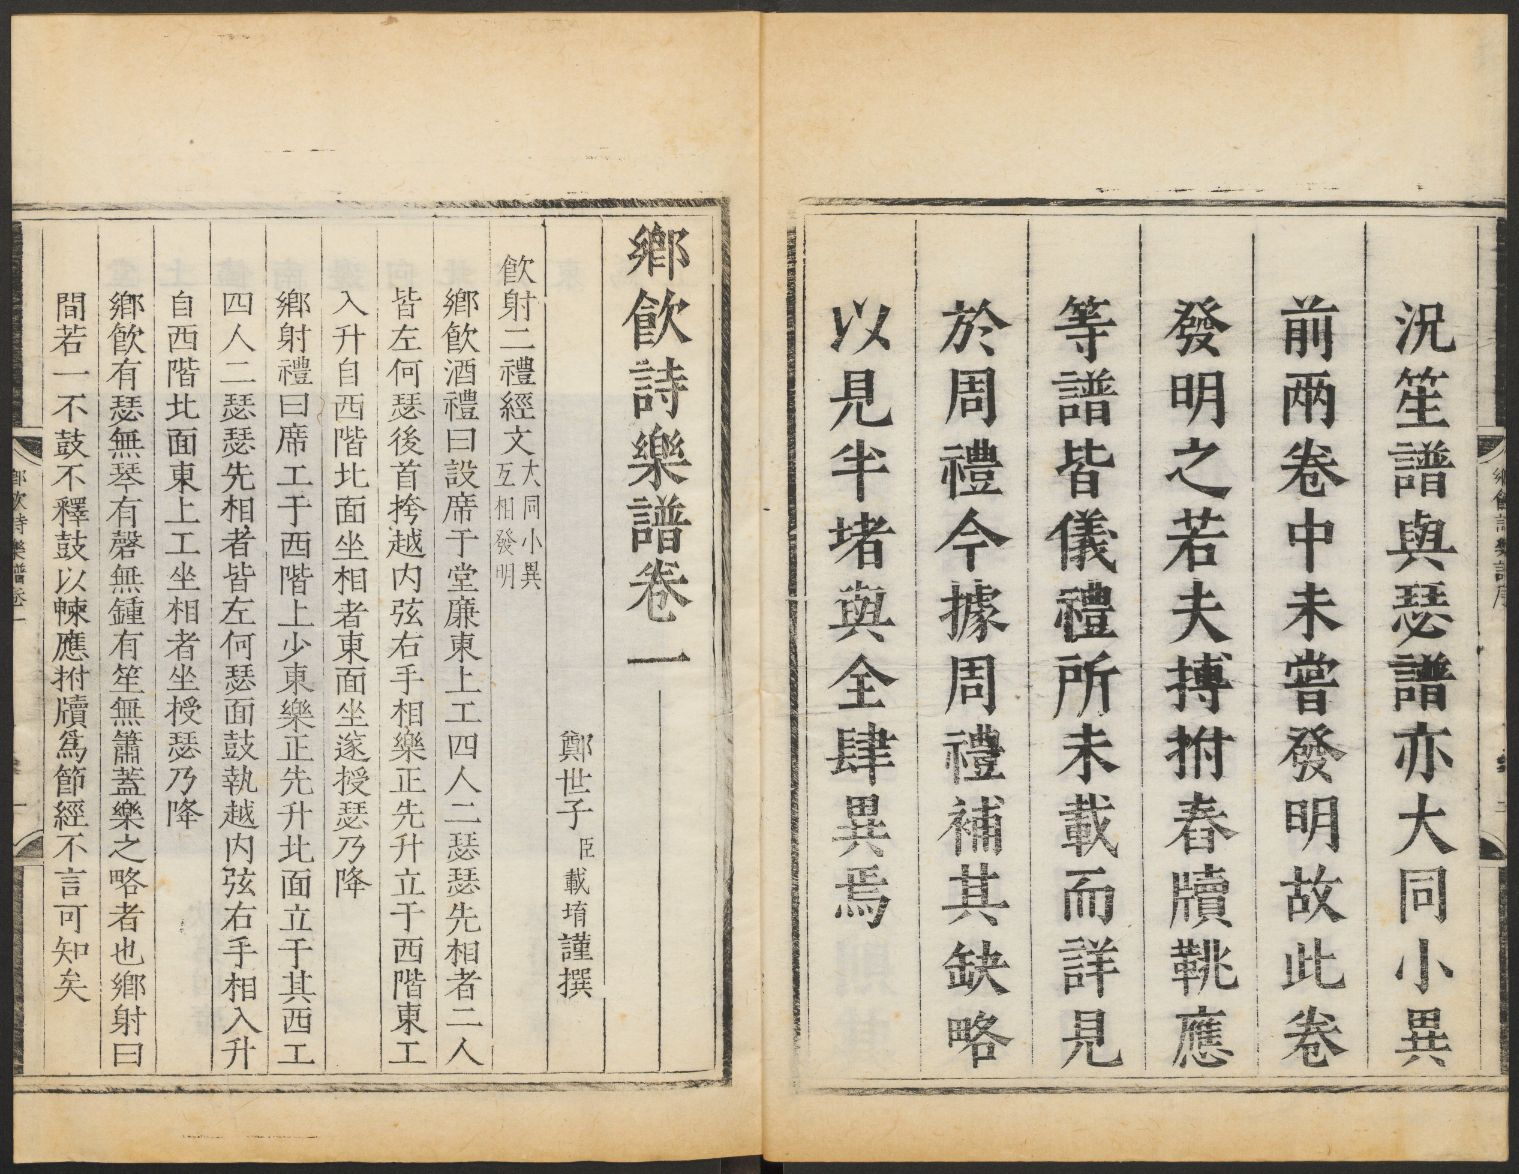 況笙譜與瑟譜亦大同小異
前兩卷中未嘗發明故此卷
發明之若夫搏拊舂牘鞉應
等譜皆儀禮所未載而詳見
於周禮今據周禮補其缺略
以見半堵與全肆異焉
鄉飲詩樂譜卷一
鄭世子臣載堉謹撰
飲射二禮經文大同小異互相發明
鄉飲酒禮曰設席于堂廉東上工四人二瑟瑟先相者二人
皆左何瑟後首挎越內弦右手相樂正先升立于西階東工
入升自西階北面坐相者東面坐遂授瑟乃降
鄉射禮曰席工于西階上少東樂正先升北面立于其西工
四人二瑟瑟先相者皆左何瑟面鼓執越內弦右手相入升
自西階北面東上工坐相者坐授瑟乃降
鄉飲有瑟無琴有磬無鍾有笙無簫蓋樂之略者也鄉射曰
間若一不鼓不釋鼓以朄應拊牘為節經不言可知矣